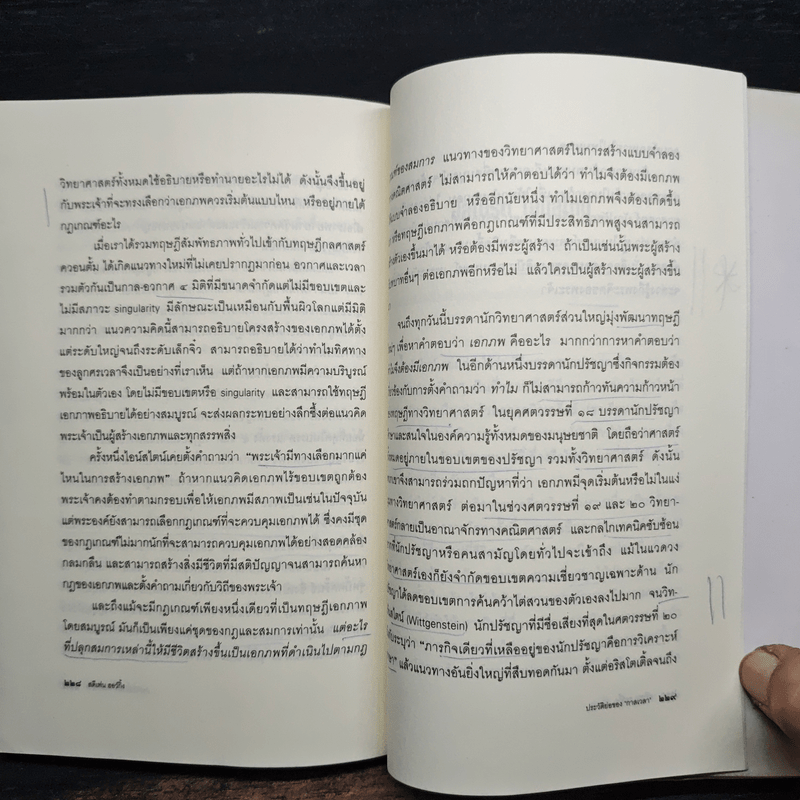 วิทยาศาสตร์ทั้งหมดใช้อธิบายหรือทำนายอะไรไม่ได้ ดังนั้นจึงขึ้นอยู่
กับพระเจ้าที่จะทรงเลือกว่าเอกภพควรเริ่มต้นแบบไหน หรืออยู่ภายใต้
กฎเกณฑ์อะไร
เมื่อเราได้รวมทฤษฎีสัมพัทธภาพทั่วไปเข้ากับทฤษฎีกลศาสตร์
ควอนตั้ม ได้เกิดแนวทางใหม่ที่ไม่เคยปรากฏมาก่อน อวกาศและเวลา
รวมตัวกันเป็นกาล-อวกาศ ๔ มิติที่มีขนาดจำกัดแต่ไม่มีขอบเขตและ
ไม่มีสภาวะ singularity มีลักษณะเป็นเหมือนกับพื้นผิวโลกแต่มีมิติ
มากกว่า แนวความคิดนี้สามารถอธิบายโครงสร้างของเอกภพได้ตั้ง
แต่ระดับใหญ่จนถึงระดับเล็กจิ๋ว สามารถอธิบายได้ว่าทำไมทิศทาง
ของลูกศรเวลาจึงเป็นอย่างที่เราเห็น แต่ถ้าหากเอกภพมีความบริบูรณ์
พร้อมในตัวเอง โดยไม่มีขอบเขตหรือ singularity และสามารถใช้ทฤษฎี
เอกภาพอธิบายได้อย่างสมบูรณ์ จะส่งผลกระทบอย่างลึกซึ้งต่อแนวคิด
พระเจ้าเป็นผู้สร้างเอกภพและทุกสรรพสิ่ง
ครั้งหนึ่งไอน์สไตน์เคยตั้งคำถามว่า "พระเจ้ามีทางเลือกมากแค่
ไหนในการสร้างเอกภพ" ถ้าหากแนวคิดเอกภพไร้ขอบเขตถูกต้อง
พระเจ้าคงต้องทำตามกรอบเพื่อให้เอกภพมีสภาพเป็นเช่นในปัจจุบัน
แต่พระองค์ยังสามารถเลือกกฎเกณฑ์ที่จะควบคุมเอกภพได้ ซึ่งคงมีชุด
ของกฎเกณฑ์ไม่มากนักที่จะสามารถควบคุมเอกภพได้อย่างสอดคล้อง
กลมกลืน และสามารถสร้างสิ่งมีชีวิตที่มีสติปัญญาจนสามารถค้นหา
กฎของเอกภพและตั้งคำถามเกี่ยวกับวิถีของพระเจ้า
และถึงแม้จะมีกฎเกณฑ์เพียงหนึ่งเดียวที่เป็นทฤษฎีเอกภาพ
โดยสมบูรณ์ มันก็เป็นเพียงแค่ชุดของกฎและสมการเท่านั้น แต่อะไร
ที่ปลุกสมการเหล่านี้ให้มีชีวิตสร้างขึ้นเป็นเอกภพที่ดำเนินไปตามกฎ
๒๒๘ สตีเฟน ฮอว์กิ้ง
ของสมการ แนวทางของวิทยาศาสตร์ในการสร้างแบบจำลอง
คณิตศาสตร์ ไม่สามารถให้คำตอบได้ว่า ทำไมจึงต้องมีเอกภพ
แบบจำลองอธิบาย หรืออีกนัยหนึ่ง ทำไมเอกภพจึงต้องเกิดขึ้น
หรือทฤษฎีเอกภาพคือกฎเกณฑ์ที่มีประสิทธิภาพสูงจนสามารถ
ตัวเองขึ้นมาได้ หรือต้องมีพระผู้สร้าง ถ้าเป็นเช่นนั้นพระผู้สร้าง
บทบาทอื่นๆ ต่อเอกภพอีกหรือไม่ แล้วใครเป็นผู้สร้างพระผู้สร้างขึ้น
จนถึงทุกวันนี้บรรดานักวิทยาศาสตร์ส่วนใหญ่มุ่งพัฒนาทฤษฎี
เพื่อหาคำตอบว่า เอกภพ คืออะไร มากกว่าการหาคำตอบว่า
จึงต้องมีเอกภพ ในอีกด้านหนึ่งบรรดานักปรัชญาซึ่งกิจกรรมต้อง
ข้องกับการตั้งคำถามว่า ทำไม ก็ไม่สามารถก้าวทันความก้าวหน้า
ของทฤษฎีทางวิทยาศาสตร์ ในยุคศตวรรษที่ ๑๘ บรรดานักปรัชญา
และสนใจในองค์ความรู้ทั้งหมดของมนุษยชาติ โดยถือว่าศาสตร์
อยู่ภายในขอบเขตของปรัชญา รวมทั้งวิทยาศาสตร์ ดังนั้น
เขาจึงสามารถร่วมถกปัญหาที่ว่า เอกภพมีจุดเริ่มต้นหรือไม่ในแง่
ทางวิทยาศาสตร์ ต่อมาในช่วงศตวรรษที่ ๑๙ และ ๒๐ วิทยา-
ศาสตร์กลายเป็นอาณาจักรทางคณิตศาสตร์ และกลไกเทคนิคซับซ้อน
ที่นักปรัชญาหรือคนสามัญโดยทั่วไปจะเข้าถึง แม้ในแวดวง
วิทยาศาสตร์เองก็ยังจำกัดขอบเขตความเชี่ยวชาญเฉพาะด้าน นัก
ปรัชญาได้ลดขอบเขตการค้นคว้าไต่สวนของตัวเองลงไปมาก จนวิท-
เก้นสไตน์ (Wittgenstein) นักปรัชญาที่มีชื่อเสียงที่สุดในศตวรรษที่ ๒๐
ระบุว่า "ภารกิจเดียวที่เหลืออยู่ของนักปรัชญาคือการวิเคราะห์
ภาษา" แล้วแนวทางอันยิ่งใหญ่ที่สืบทอดกันมา ตั้งแต่อริสโตเติ้ลจนถึง
ประวัติย่อของ "กาลเวลา" ๒๒๙